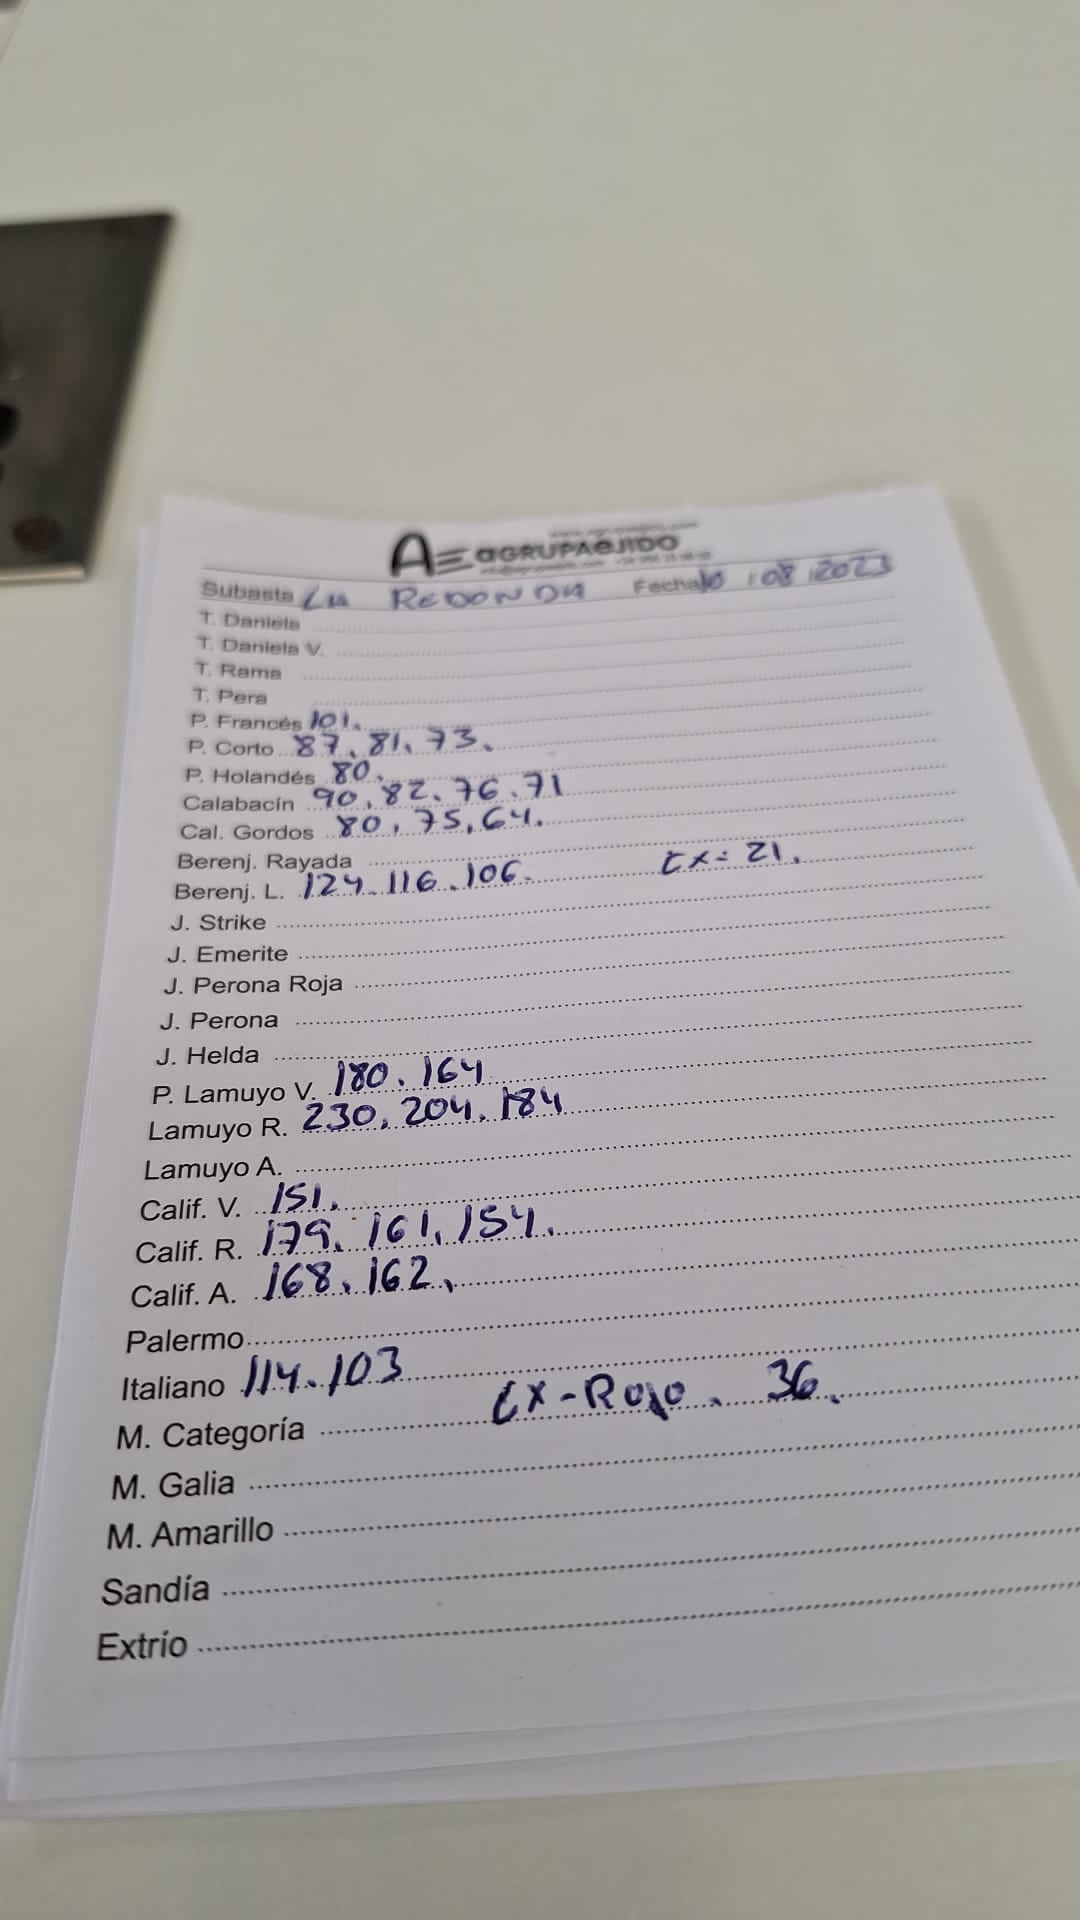 AGRUPAEJIDO
Subasta LA REDONDA Fecha 10/08/2023
T. Daniela
T. Daniela V.
T. Rama
T. Pera
P. Francés 101.
P. Corto 87. 81. 73.
P. Holandés 80.
Calabacín 90. 82. 76. 71
Cal. Gordos 80. 75. 64.
Berenj. Rayada
Berenj. L. 124. 116. 106. EX= 21.
J. Strike
J. Emerite
J. Perona Roja
J. Perona
J. Helda
P. Lamuyo V. 180. 164
Lamuyo R. 230. 204. 184
Lamuyo A.
Calif. V. 151.
Calif. R. 179. 161. 154.
Calif. A. 168. 162.
Palermo
Italiano 114. 103
M. Categoría EX-ROJO. 36.
M. Galia
M. Amarillo
Sandía
Extrío